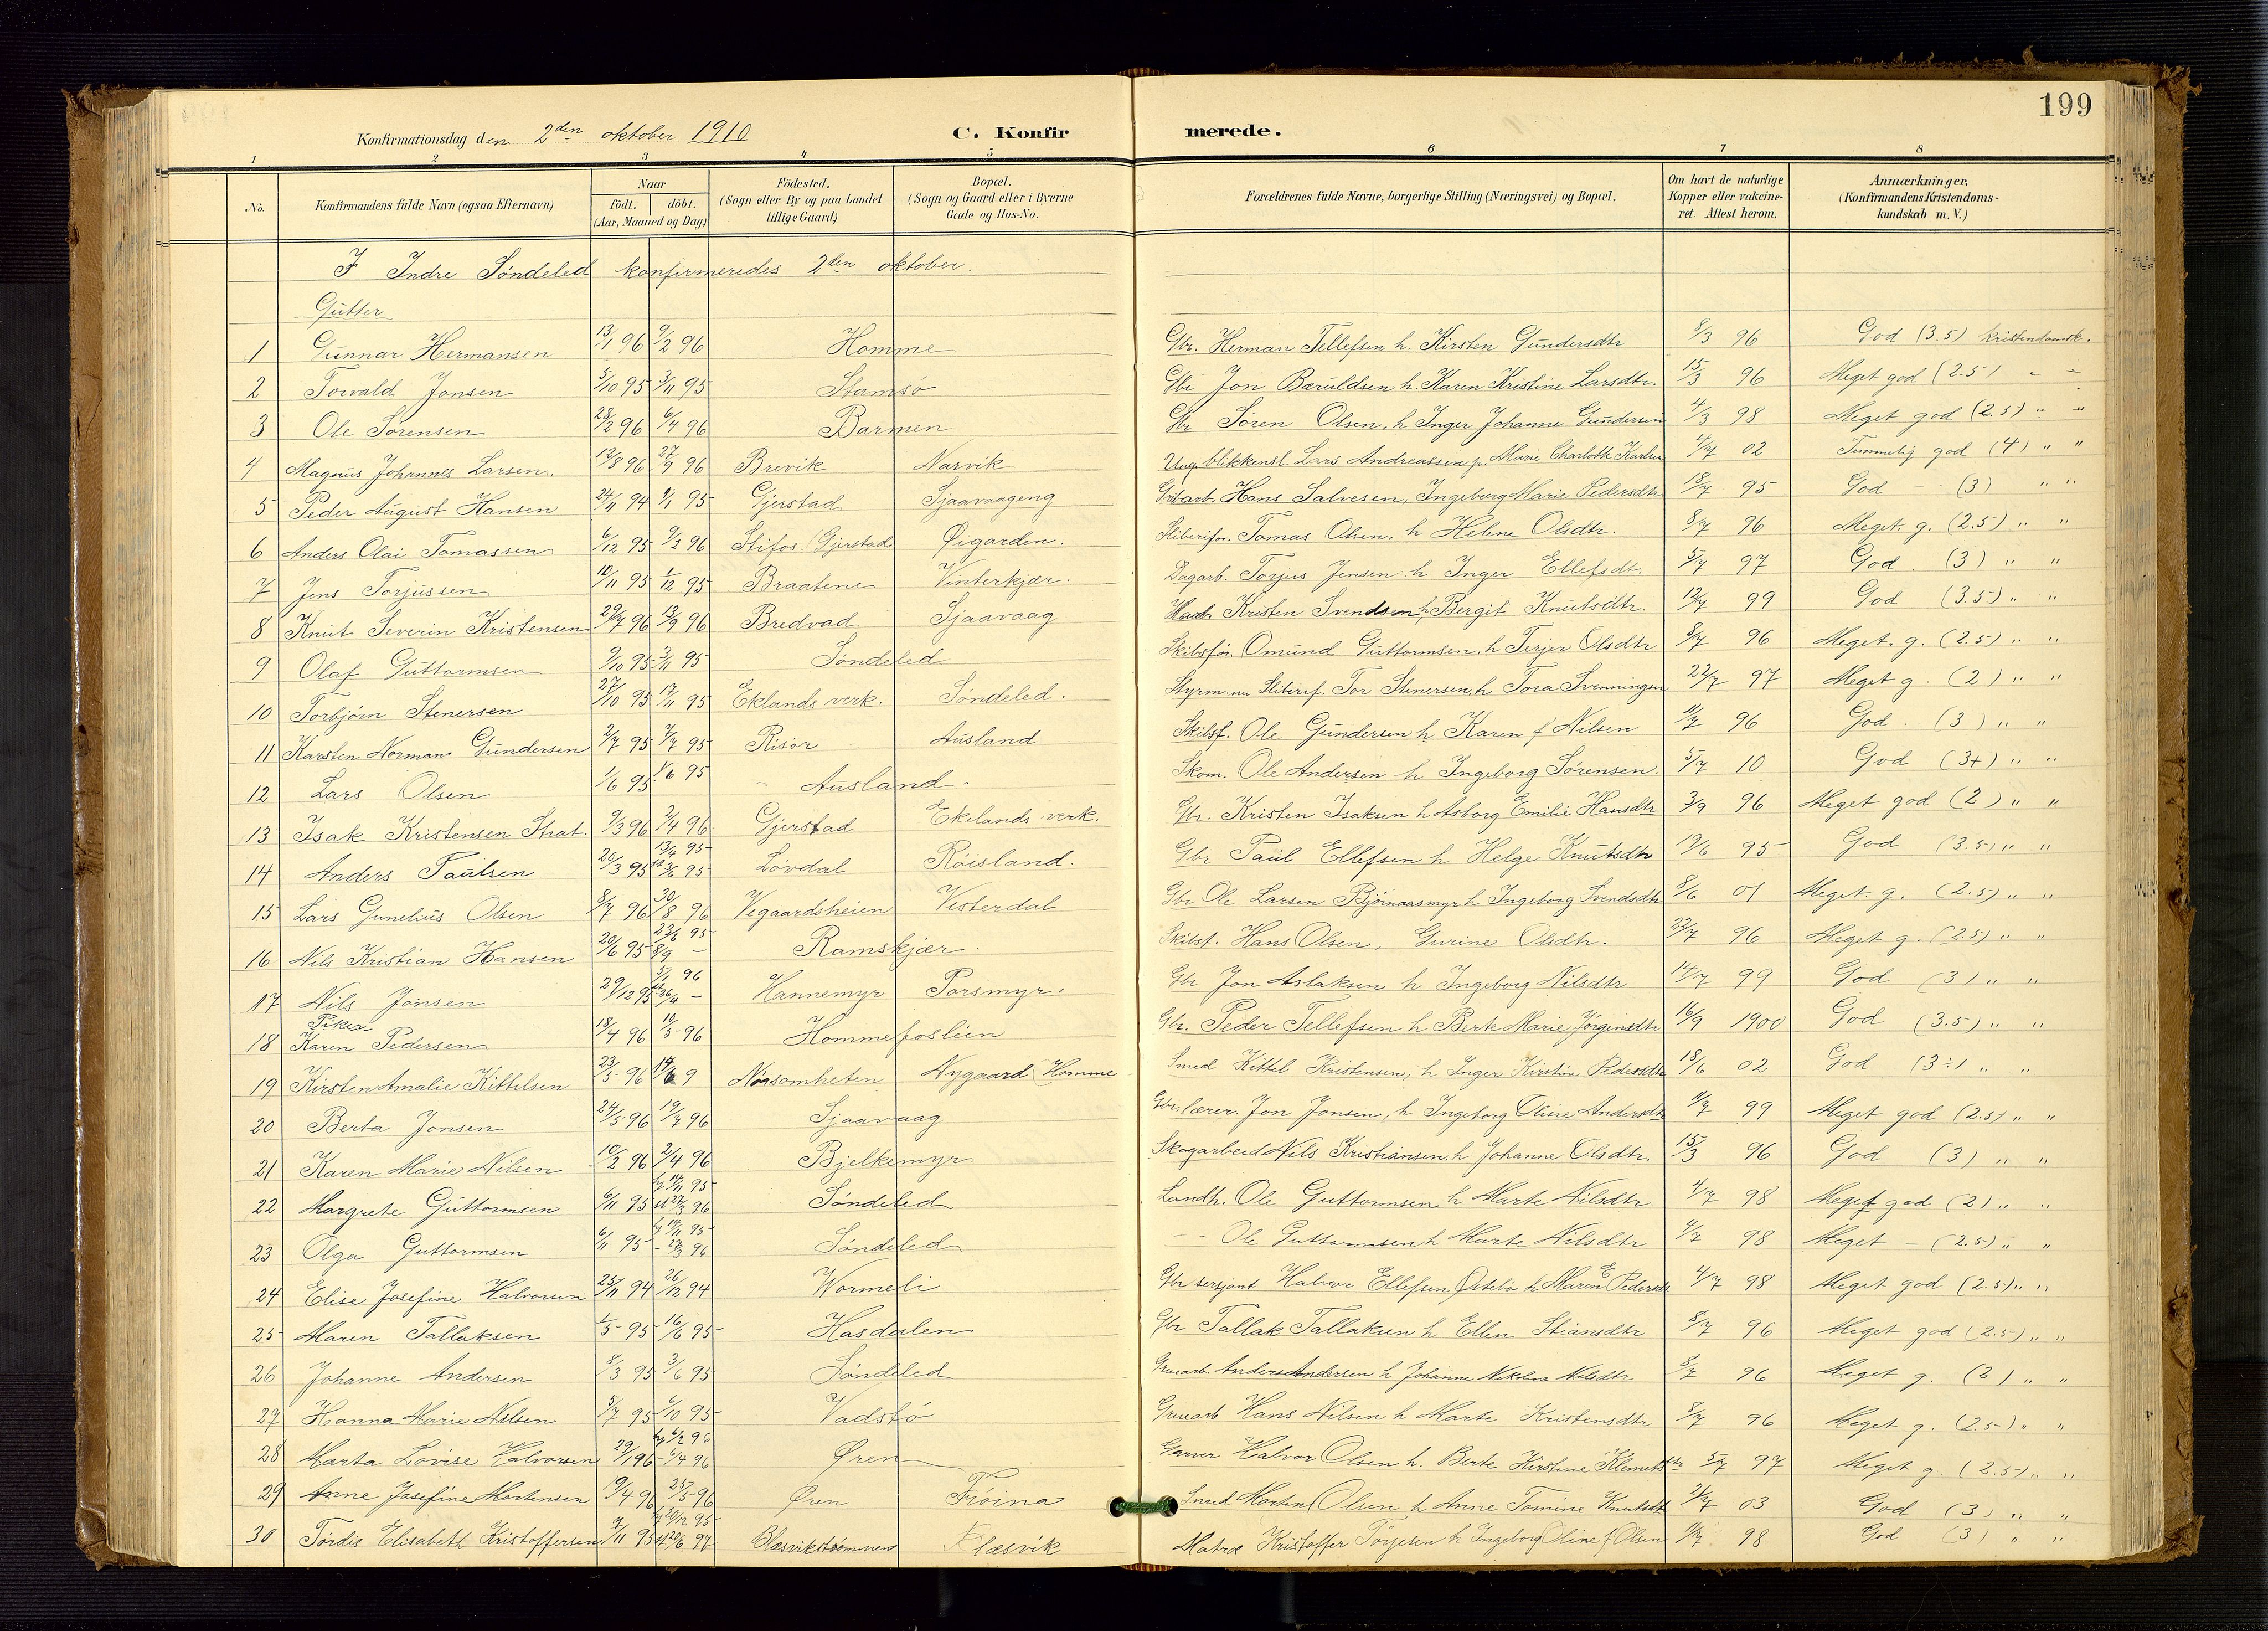 199
Konfirmationsdag den 2den oktober 1910 C. Konfirmerede.
1 2 3 4 5 6 7 8
No. Konfirmandens fulde Navn (ogsaa Efternavn) Naar födt. döbt. (Aar, Maaned og Dag) Födested. (Sogn eller By og paa Landet tillige Gaard) Bopæl. (Sogn og Gaard eller i Byerne Gade og Hus-No. Forældrenes fulde Navne, borgerlige Stilling (Næringsvei) og Bopæl. Om havt de naturlige Kopper eller vakcineret. Attest herom. Anmærkninger, (Konfirmandens Kristendomskundskab m. V.)
I Indre Söndeled konfirmeredes 2den oktober.
Gutter
1 Gunnar Hermansen 13/1 96 9/2 96 Homme Gbr. Herman Tellefsen h. Kirsten Gundersdtr 8/3 96 God (3.5) kristendomsk.
2 Torvald Jonsen 5/10 95 3/11 95 Stamsö Gbr Jon Bæruldsen h. Karen Kristine Larsdtr. 15/3 96 Meget god (2.5) " "
3 Ole Sörensen 28/2 96 6/4 96 Barmen Gbr Sören Olsen, h Inger Johanne Gundersen 4/3 98 Meget god (2.5) " "
4 Magnus Johannes Larsen. 12/8 96 27/9 96 Brevik Narvik Ung. blikkensl. Lars Andreassen p. Marie Charlotte 4/7 02 Temmelig god (4) " "
5 Peder August Hansen 24/11 94 95 Gjerstad Sjaavaageng Hans Salvesen, Ingeborg Marie Pedersdtr 18/7 95 God - (3) " "
6 Anders Olai Tomassen 6/12 95 9/2 96 Stifos. Gjerstad Øigarden. Sliberifor. Tomas Olsen, h Helene Olsdtr. 8/7 96 Meget. g. (2.5) " "
7 Jens Torjussen 10/11 95 1/12 95 Braatene Vinterkjær. Dagarb. Torjus Jensen h Inger Ellefsdt. 5/7 97 God (3) " "
8 Knut Severin Kristensen 29/7 96 13/9 96 Bredvad Sjaavaag Kristen Svendsen, h Bergit Knutsdtr. 12/7 99 God (3.5) " "
9 Olaf Guttormsen 9/10 95 3/11 95 Söndeled Skibsför. Omund Guttormsen, h Terjer Olsdtr 8/7 96 Meget. g. (2.5) " "
10 Torbjörn Stenersen 27/10 95 17/11 95 Eklands verk. Söndeled. Styrm. nu Sliberif. Tor Stenersen, h Tora Svenningsen 22/7 97 Meget g. (2) " "
11 Karsten Norman Gundersen 2/7 95 7/7 95 Risör Ausland Skibsf. Ole Gundersen h Karen f Nilsen 96 God. (3) " "
12 Lars Olsen 1/6 95 1/6 95 Ausland. Skom. Ole Andersen h Ingeborg Sörensen. 5/7 10 God (3+) " "
13 Isak Kristensen Strat. 9/3 96 2/4 96 Gjerstad Ekelands verk. Gbr. Kristen Isaksen h Asborg Emilie Hansdtr 3/9 96 Meget god (2) " "
14 Anders Paulsen 20/3 95 13/4 95 95 Lövdal Röisland. Gbr Paul Ellefsen h Helge Knutsdtr 19/6 95 God (3.5) " "
15 Lars Gunelius Olsen 8/7 96 30/8 96 Vegaardsheien Vesterdal Gbr Ole Larsen Björnaasmyr h Ingeborg Svendsdtr 8/6 01 Meget. g. (2.5) " "
16 Nils Kristian Hansen 20/6 95 23/6 95 8/9 - Ramskjær Skibsf. Hans Olsen, Gurine Olsdtr. 22/7 96 Meget g. (2.5) " "
17 Nils Jonsen 29/12 95 5/1 96 26/4 - Hannemyr Porsmyr. Gbr Jon Aslaksen h Ingeborg Nilsdtr 14/7 99 God (3) " "
Piker
18 Karen Pedersen 18/4 96 10/5 96 Hommefoslien Gbr. Peder Tellefsen h Berte Marie Jörgensdtr 16/9 1900 God (3.5) " "
19 Kirsten Amalie Kittelsen 23/5 96 14/6 9 Nöisomheten Nygaard Homme Smed Kittel Kristensen, h Inger Kirstine Pedersdtr 18/6 02 God (3÷) " "
20 Berta Jonsen 24/5 96 19/7 96 Sjaavaag Gbr. lærer. Jon Jonsen, h Ingeborg Olisie Andersdtr 99 Meget god (2.5) " "
21 Karen Marie Nilsen 10/2 96 2/4 96 Bjelkemyr Skogarbeid Nils Kristiansen, h Johanne Olsdtr. 15/3 96 God (3) " "
22 Margrete Guttormsen 6/11 95 14/11 95 27/3 96 Söndeled Landh. Ole Guttormsen h Marte Nilsdtr 4/7 98 Meget god (2) " "
23 Olga Guttormsen 6/11 95 14/11 95 - 27/3 96 Söndeled - - Ole Guttormsen h Marte Nilsdtr 4/7 98 Meget - (2.5) " "
24 Elise Josefine Halvorsen 25/11 94 26/12 94 Wormeli Gbr sersjant Halvor Ellefsen Östebö h Maren E Pedersdtr 4/7 98 Meget god (2.5) " "
25 Maren Tallaksen 1/5 95 16/6 95 Hasdalen Gbr Tallak Tallaksen h Ellen Stiansdtr 8/7 96 Meget god (2.5) " "
26 Johanne Andersen 8/3 95 3/6 95 Söndeled Gruearb. Anders Andersen h Johanne Nikoline Nilsdtr 8/7 96 Meget g. (2) " "
27 Hanna Marie Nilsen 5/7 95 6/10 95 Vadstö Gruearb Hans Nilsen h Marte Kristensdtr 8/7 96 Meget g. (2.5) " "
28 Marta Lovise Halvorsen 29/1 96 6/2 96 6/4 96 Øren Garver Halvor Olsen h. Berte Kirstine Klemetsdtr 5/7 97 Meget g. (2.5) " "
29 Anne Josefine Mortensen 9/4 96 25/5 96 Øren Fröina Smed Morten Olsen h Anne Tomine Knutsdt 03 God (3) " "
30 Tordis Elisabeth Kristoffersen 7/11 95 20/12 95 20/6 97 Claesvikströmmen Klæsvik Matro Kristoffer Torjesen h Ingeborg Oline f. Olsen 98 God (3) " "